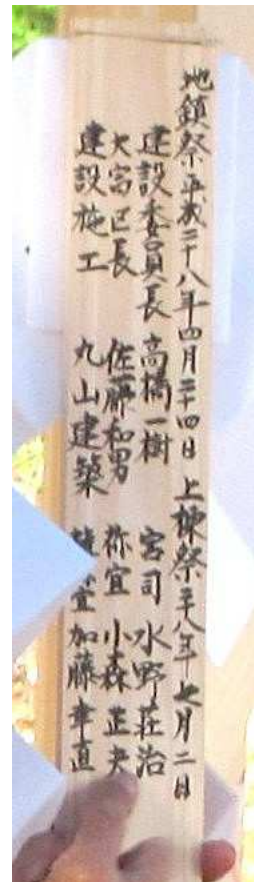 地鎮祭平成二十八年四月二十四日 上棟祭二十八年七月二日
建設委員長 高橋一樹 宮司 水野荘治
大宮区長 佐藤和男 祢宜 小森正夫
建設施工 丸山建築 宜 加藤幸直